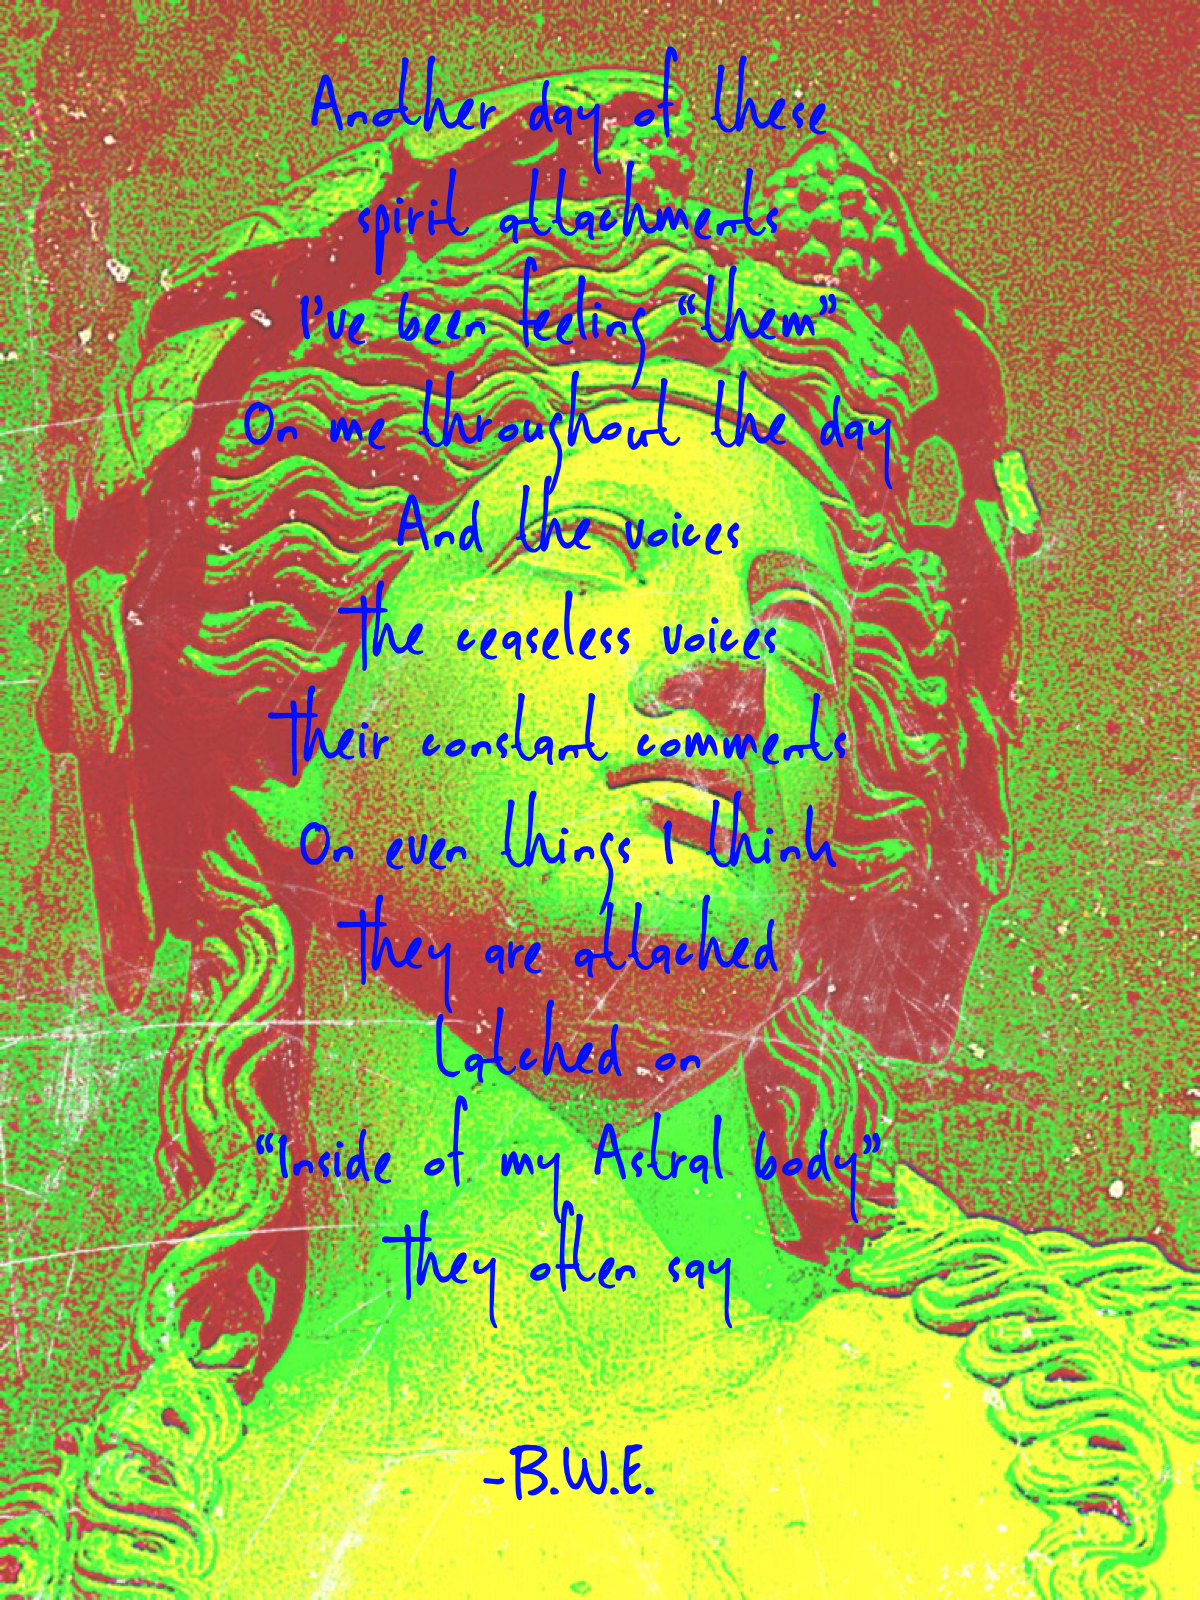 Another day of these
spirit attachments
I've been feeling “them”
On me throughout the day
And the voices
The ceaseless voices
Their constant comments
On even things I think
They are attached
Latched on
“Inside of my Astral body”
They often say
-B.W.E.